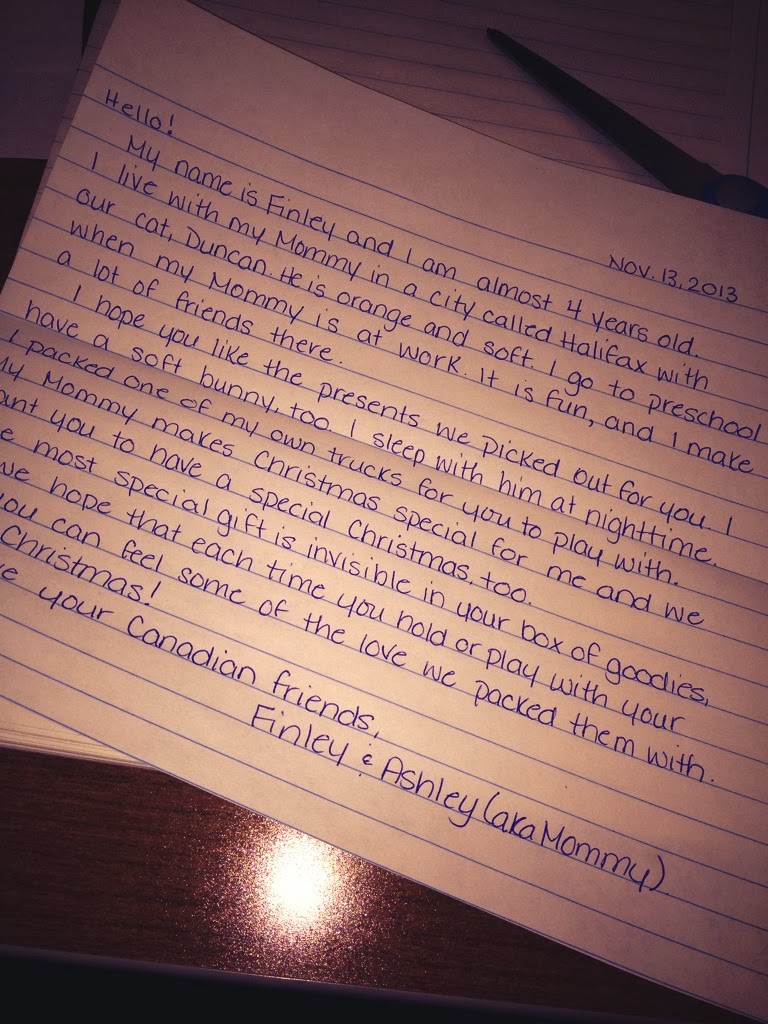 Nov. 13, 2013
Hello!
My name is Finley and I am almost 4 years old.
I live with my Mommy in a city called Halifax with
our cat, Duncan. He is orange and soft. I go to preschool
when my Mommy is at work. It is fun, and I make
a lot of friends there.
I hope you like the presents we picked out for you. I
have a soft bunny, too. I sleep with him at nighttime.
I packed one of my own trucks for you to play with.
My Mommy makes Christmas special for me and we
ant you to have a special Christmas, too.
e most special gift is invisible in your box of goodies,
we hope that each time you hold or play with your
you can feel some of the love we packed them with.
Christmas!
e your Canadian friends,
Finley & Ashley (aka Mommy)